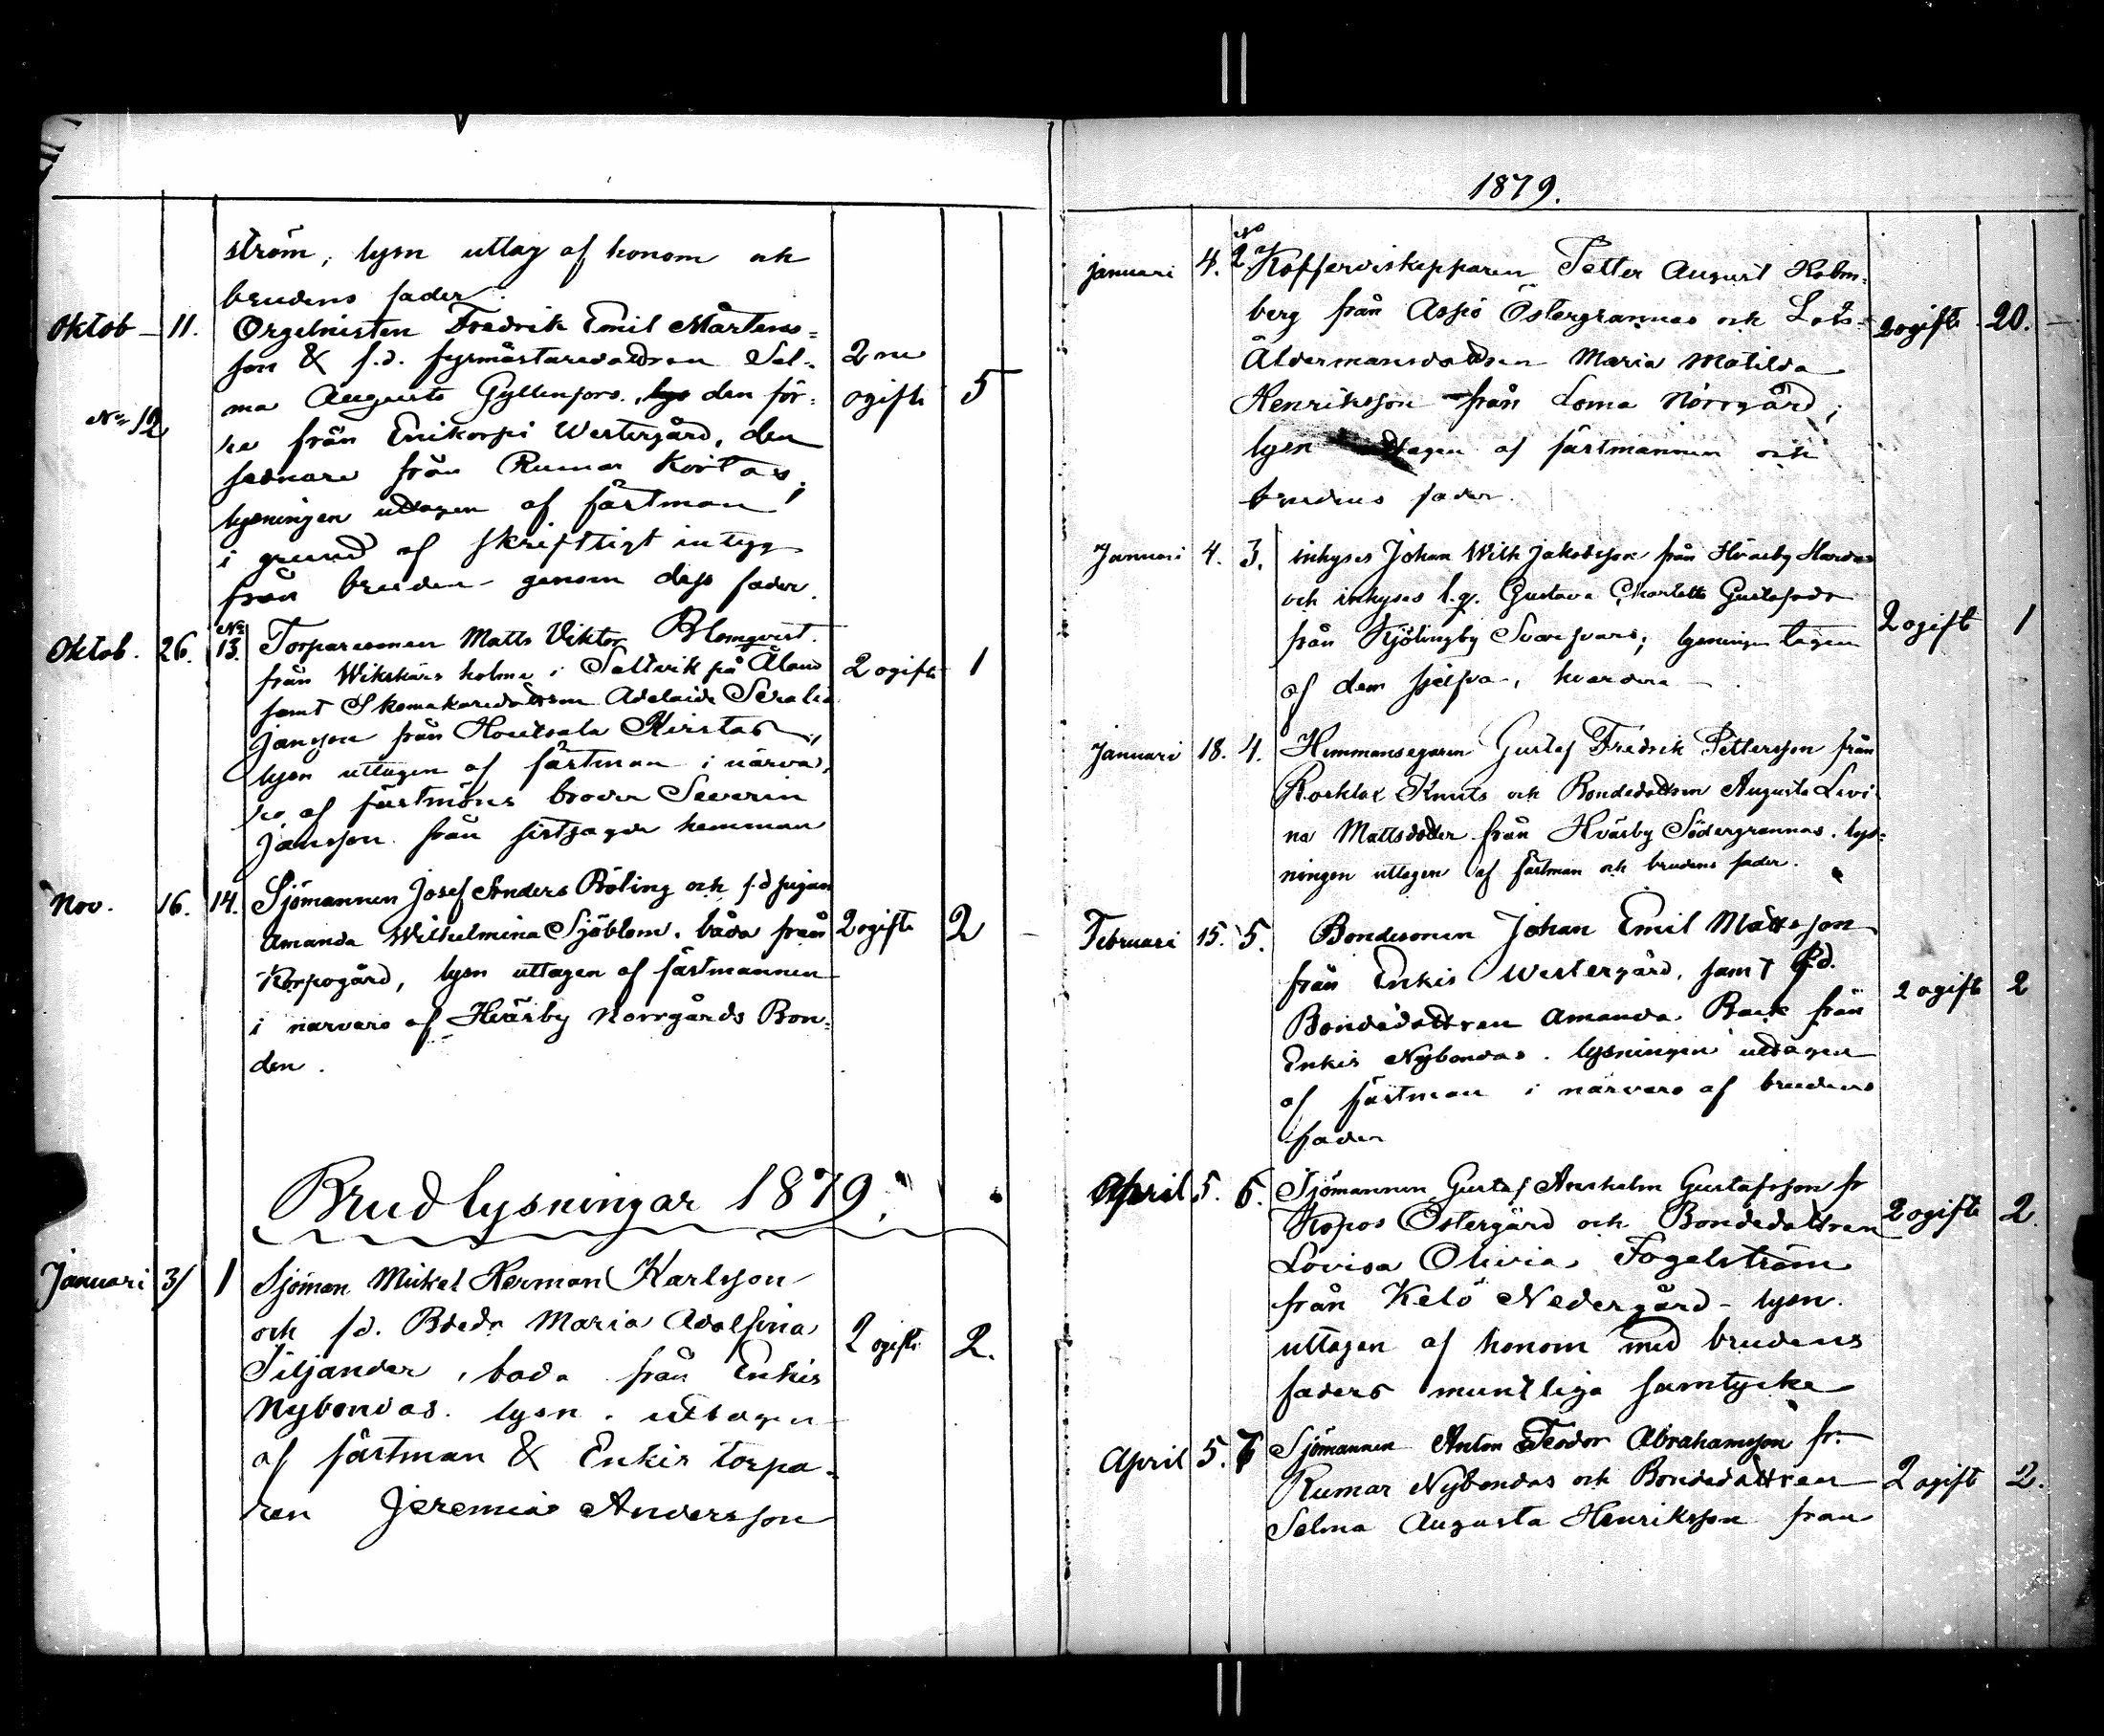 ström, lysn uttag af honom och
brudens fader.
Oktob – 11. Orgelnisten Fredrik Emil Mårtens=
son & f.d. fyrmästaredottren Sel-
2ne
ma Augusta Gyllenfors, den för-
ogifte 5
No 12
re från Enikorpi Westergård, den
sednare från Rumar Körtas;
lysningen uttagen af fästman
i grund af skriftligt intyg
från bruden genom dess fader.
Oktob. 26. No 13. Torparesonen Matts Viktor Blomqvist.
från Wikskärs holme i Saltvik på Åland
2 ogifte 1
samt Skomakaredottren Adelaide Serafia
Jansson från Houtsala Kirstas;
lysn uttagen af fästman i närva-
ro af fästmöns broder Severin
Jansson från sistsagde hemman
Nov. 16. 14. Sjömannen Josef Anders Böling och f.d. pigan
Amanda Wilhelmina Sjöblom, båda från
2 ogifte 2
Korpogård, lysn uttagen af fästmannen
i närvaro af Hväsby Norrgårds Bon-
den.
Brudlysningar 1879.
Januari 3/ 1 Sjöman Mickel Herman Karlsson
och f.d. Bdedr Maria Adolfina
2 ogifte 2.
Siljander, båda från Enkis
Nybondas. lysn. uttagen
af fästman & Enkis torpa-
ren Jeremias Andersson
1879.
januari 4. No 2. Kofferdiskepparen Petter August Holm-
berg från Aspö Östergrannas och Lots-
2 ogifte 20.
Åldermansdottren Maria Matilda
Henriksson från Loma Norrgård;
lysn uttagen af fästmannen och
brudens fader.
Januari 4. 3. inhyses Johan Wilh Jakobsson från Hväsby
och inhyses l.q. Gustava Charlotta Gustafsdr
2 ogift 1
från Kjölingby Svarfvars; lysningen tagen
af dem sjelfva, hvardera
Januari 18. 4. Hemmansegaren Gustaf Fredrik Pettersson från
Rocklax Knuts och Bondedottren Augusta Levi-
na Mattsdoder från Hväsby Södergrannas. lys=
ningen uttagen af fästman och brudens fader.
Februari 15. 5. Bondesonen Johan Emil Mattsson
från Enkis Westergård, samt f.d.
2 ogift 2
Bondedottren Amanda Back från
Enkis Nybondas. lysningen uttagen
af fästman i närvaro af brudens
fader
April 5. 6. Sjömannen Gustaf Anshelm Gustafsson fr
Kopos Östergård och Bondedottren
2 ogifte 2.
Lovisa Olivia Fogelström
från Kelö Nedergård – lysn.
uttagen af honom med brudens
faders muntliga samtycke
April 5. 7 Sjömannen Anton Teodor Abrahamsson fr.
Rumar Nybondas och Bondedottren
2 ogift 2.
Selma Augusta Henriksson från